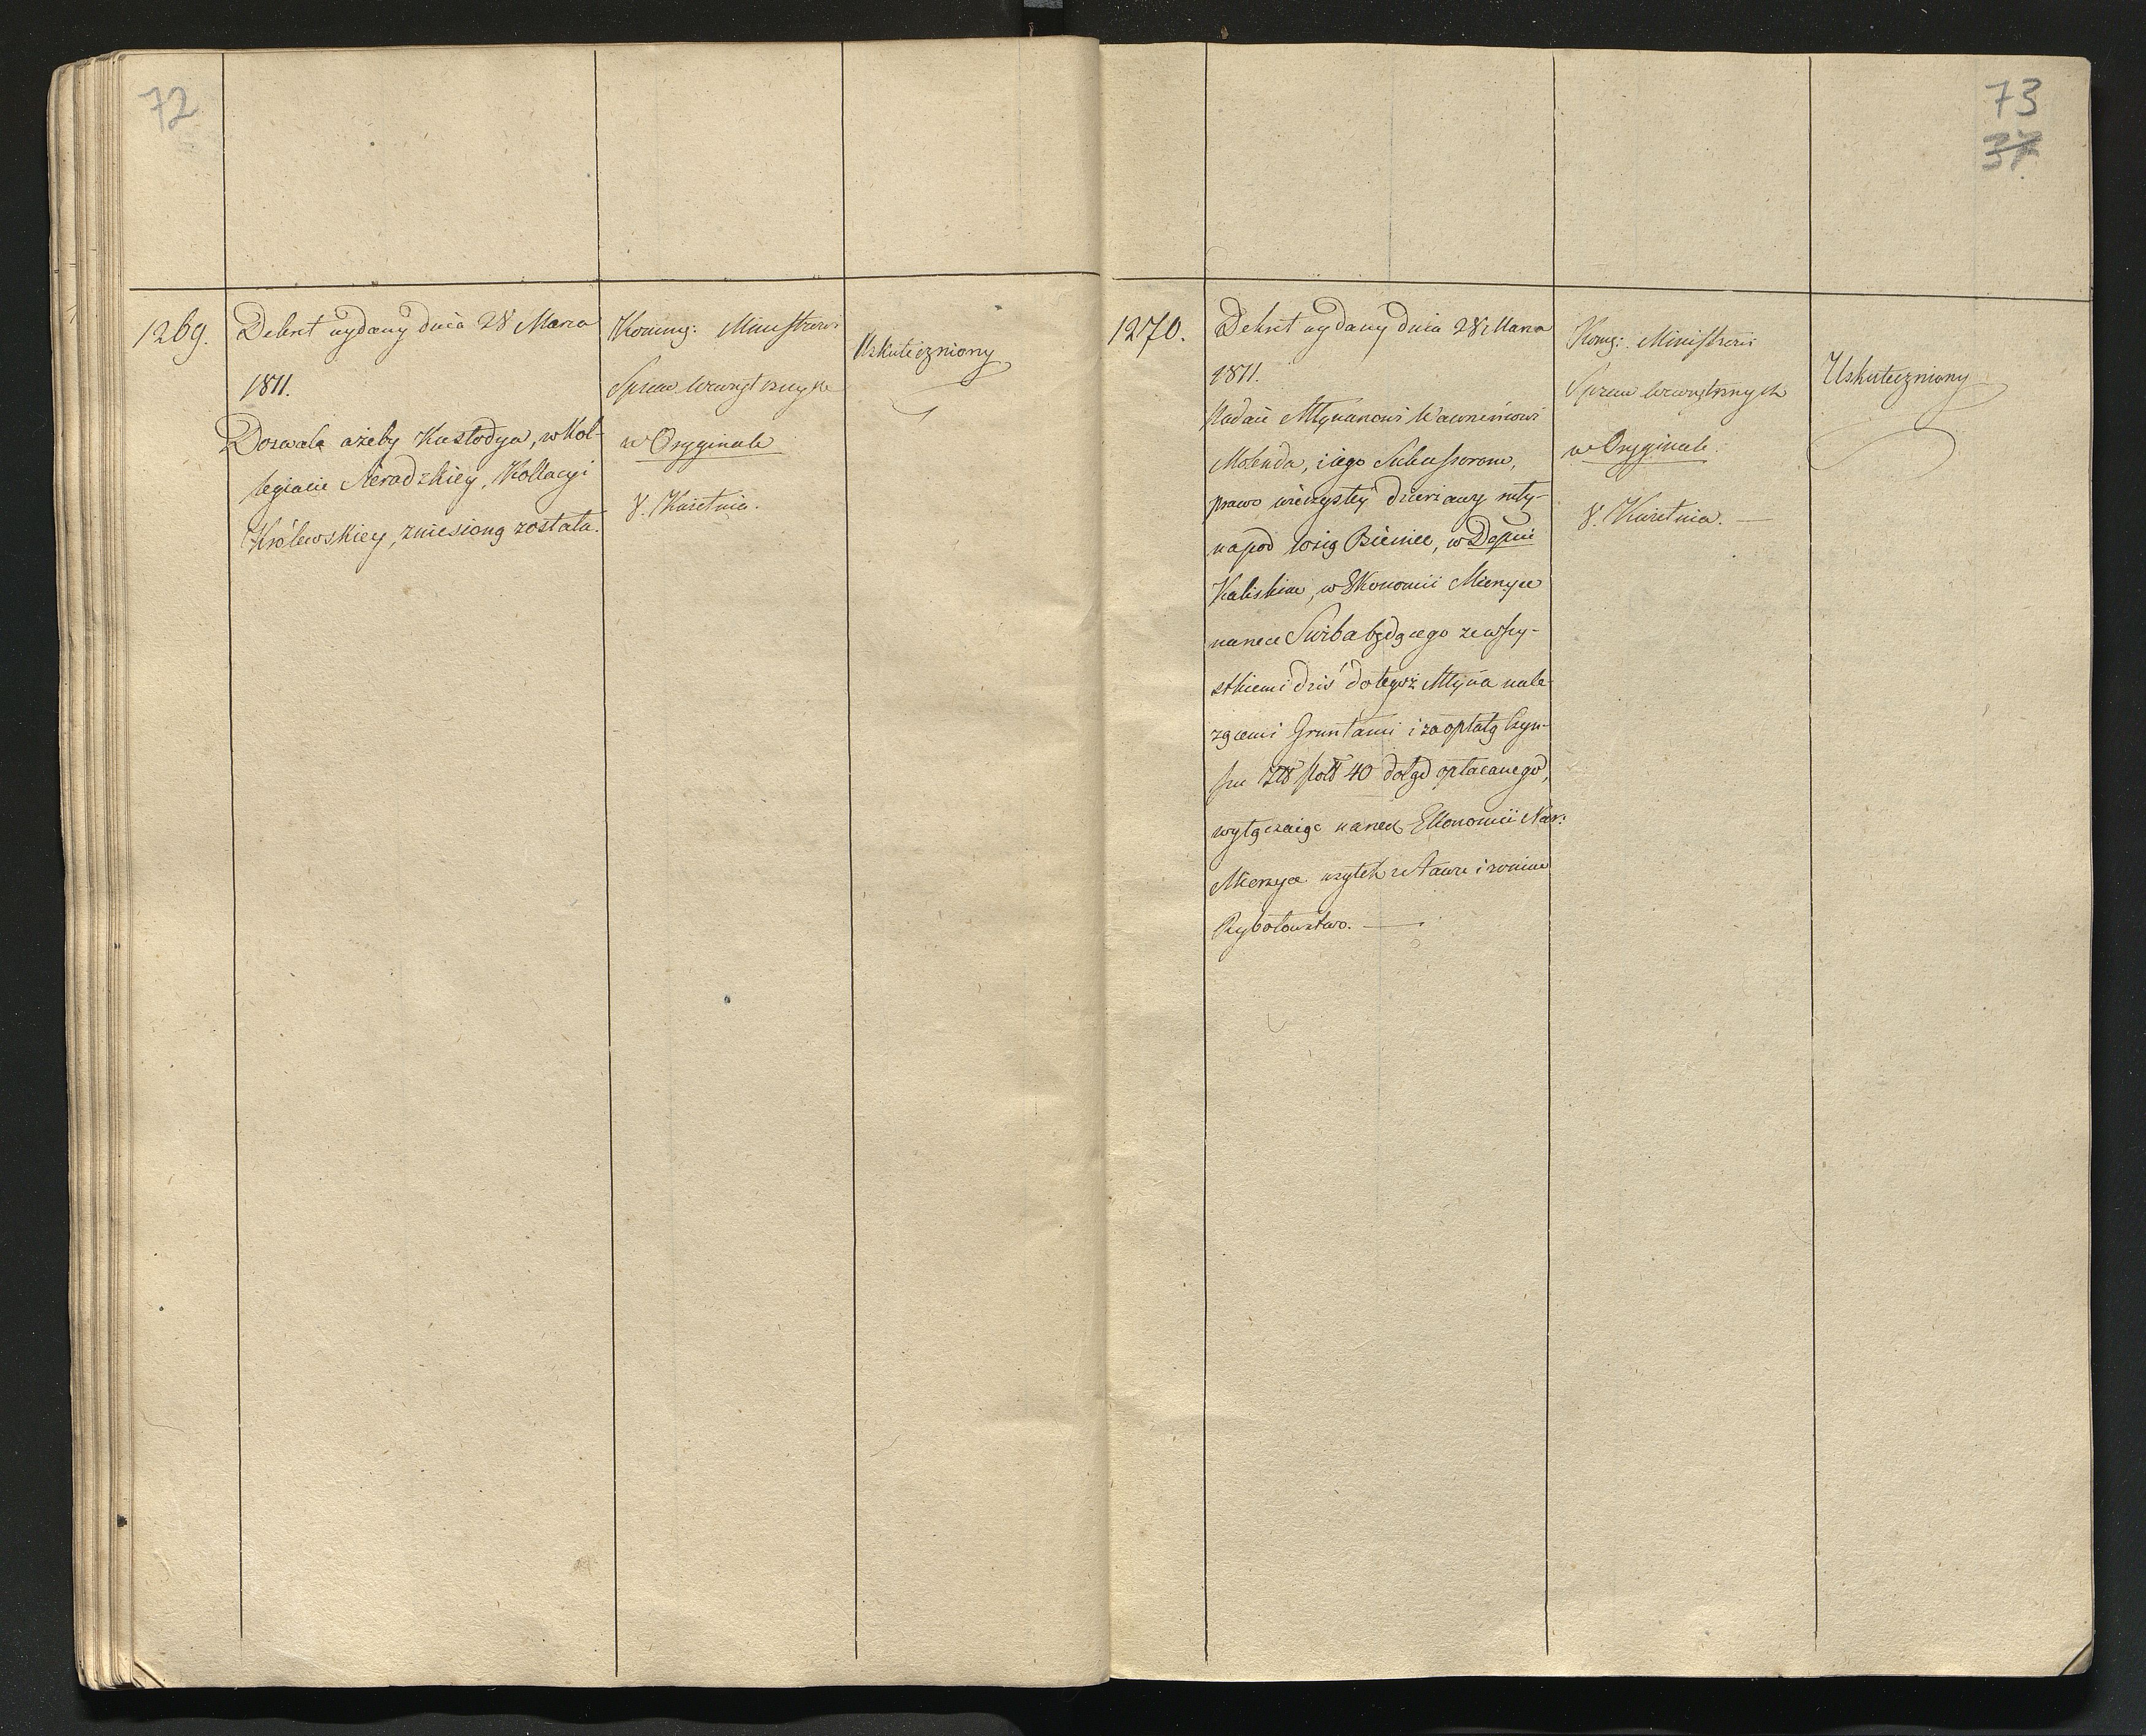 72
1269.
Dekret wydany dnia 28 Marca
1811.
Dozwala ażeby Kustodya, w Kol-
legiacie Sieradzkiey, Kollacyi
Królewskiey, zniesioną została.
Kommg: Ministrowi
Spraw Wewnętrznych
w Oryginale
8. Kwietnia.
Uskuteczniony
73
37
1270.
Dekret wydany dnia 28 Marca
1811.
Nadaie Młynarowi Wawrzeńcowi
Molenda, i iego Sukcessorom,
prawo wieczystey dzierzawy mły-
na pod wsią Bieniec, w Depcie
Kaliskim, w Ekonomii Mierzyce
na rzece będącego ze wszy-
stkiemi dziś do tegoż Młyna nale-
żącemi Gruntami i za opłatą Czyn-
szu Złł poll 40 dotąd opłacanego,
wyłączaiąc na rzecz Ekonomii Nar:
Mierzyce użytek z Stawu i wolne
Rybołowstwo.
Komg: Ministrowi
Spraw Wewnętrznych
w Oryginale.
8. Kwietnia.
Uskuteczniony